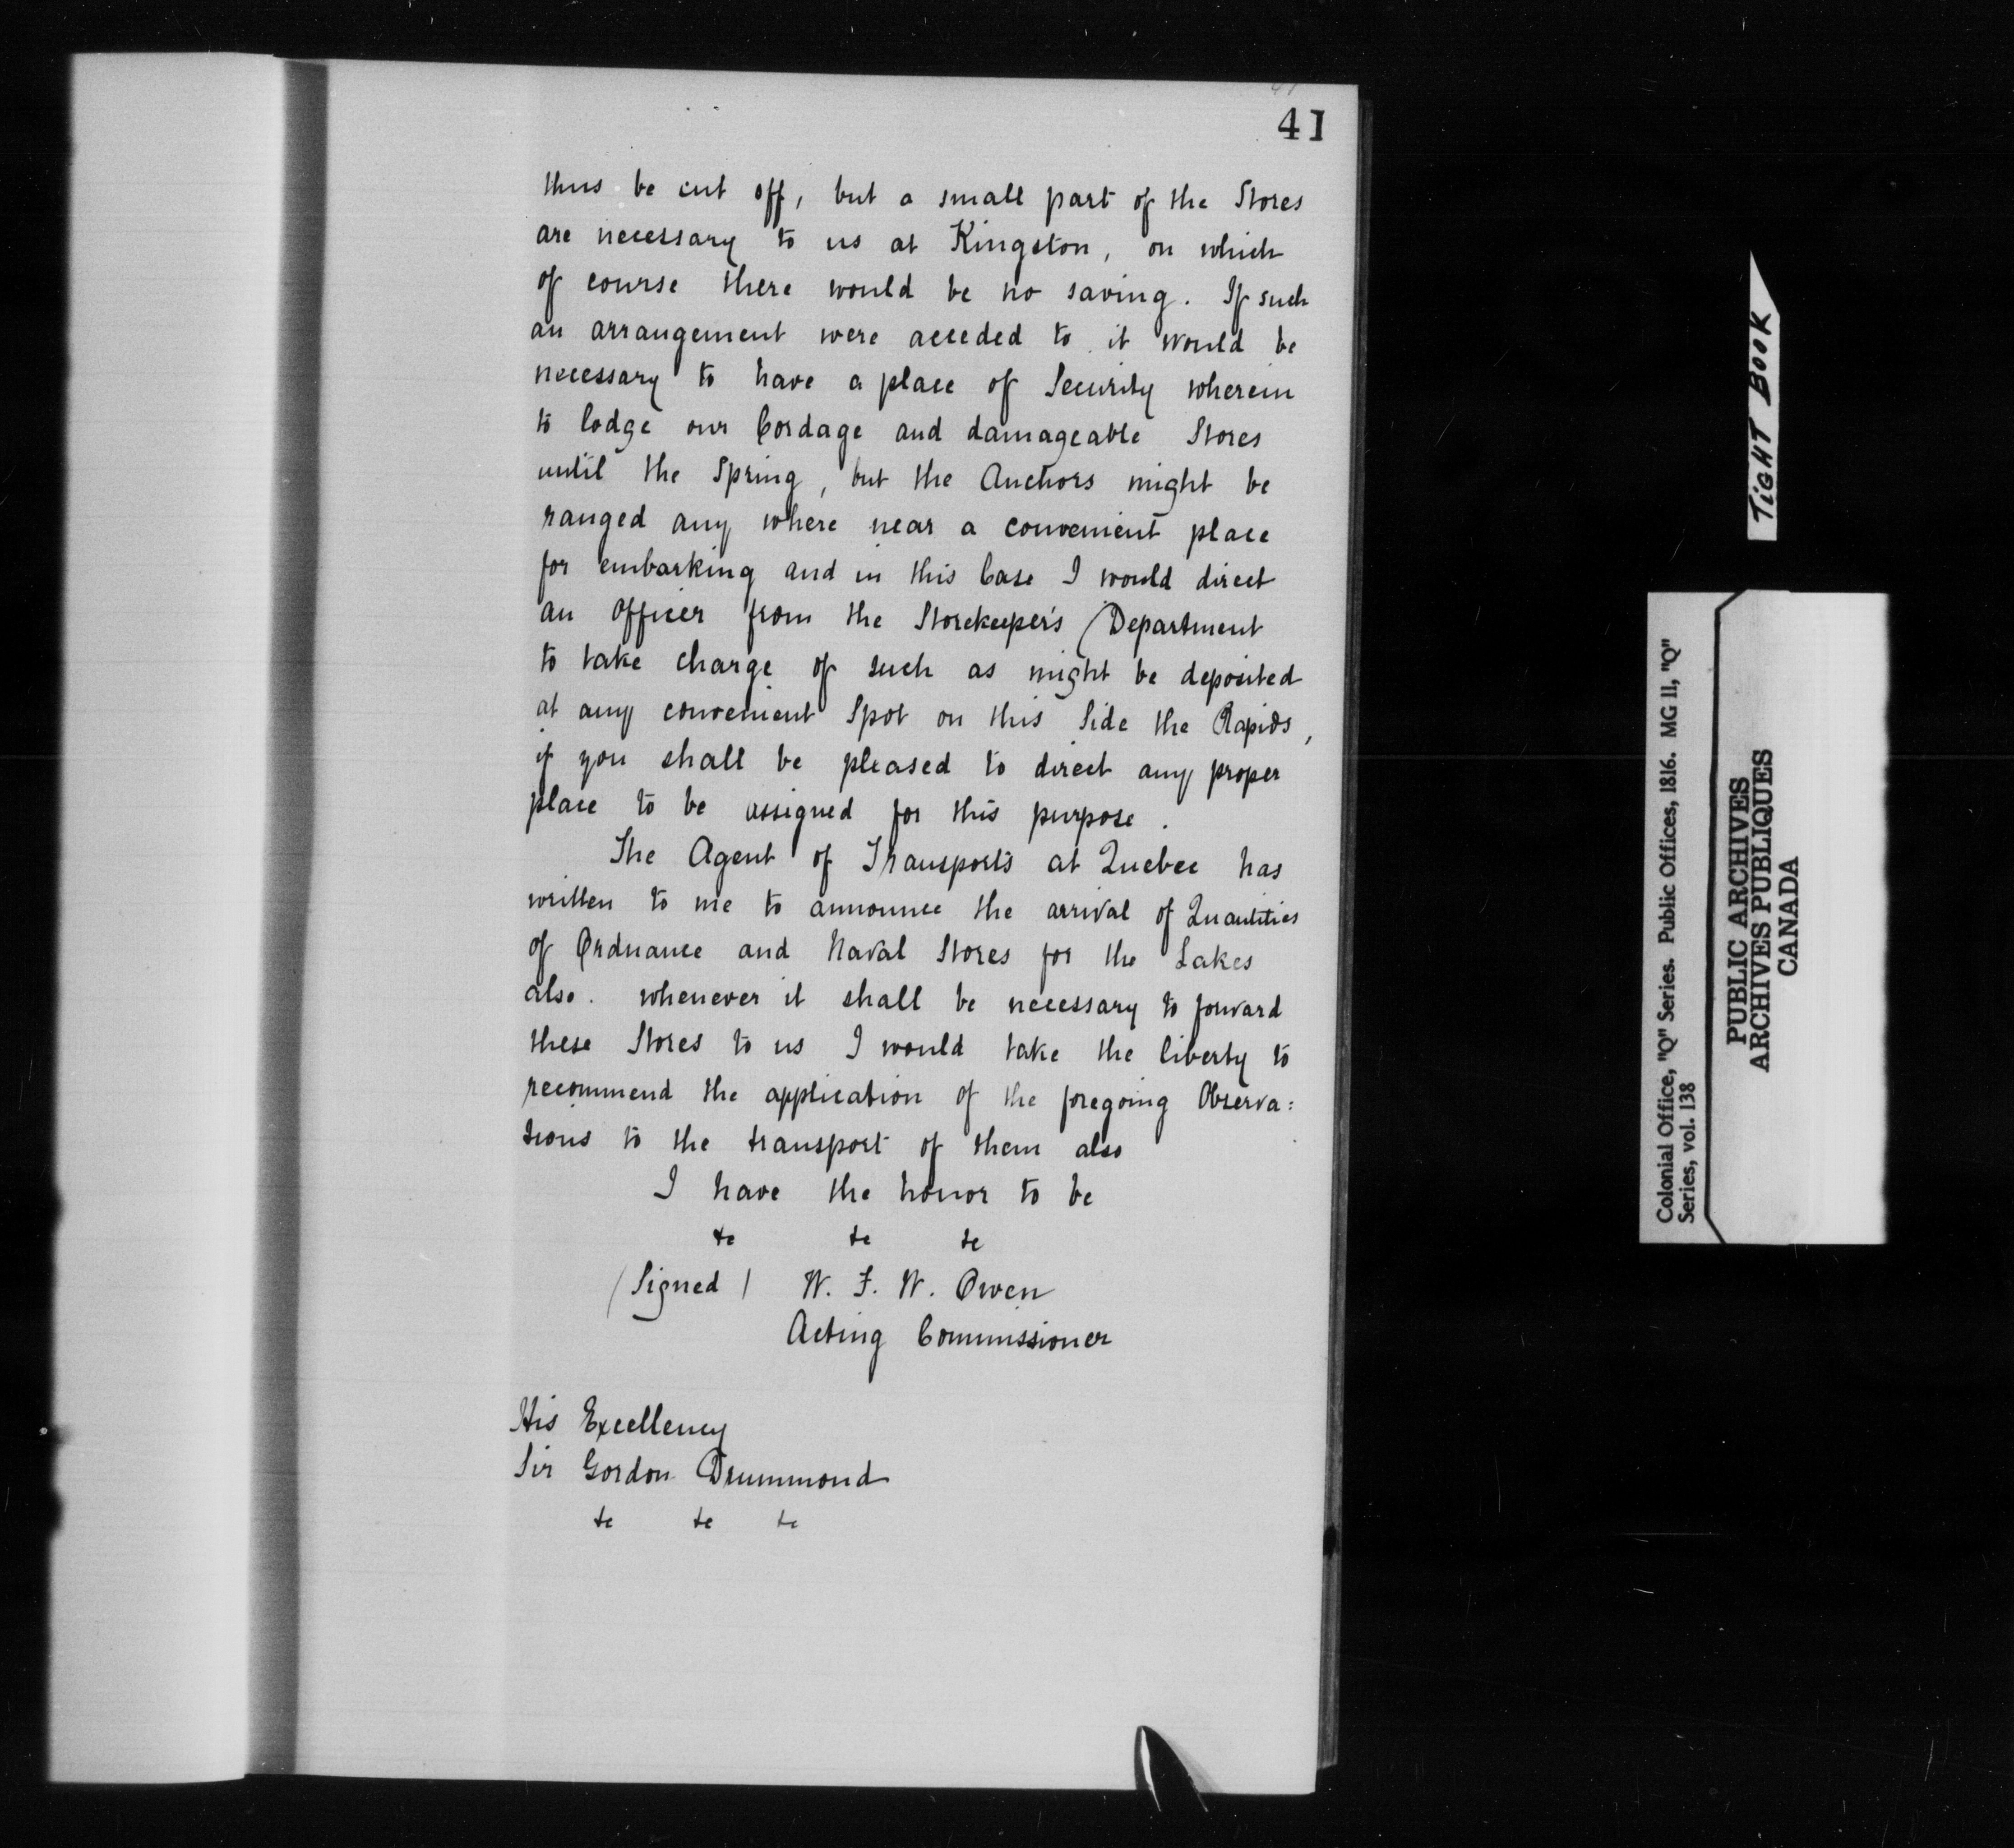 41
thus be cut off, but a small part of the Stores
are necessary to us at Kingston, on which
of course there would be no saving. If such
an arrangement were acceded to it would be
necessary to have a place of Security wherein
to lodge our Cordage and damageable Stores
until the Spring, but the Anchors might be
ranged any where near a convenient place
for embarking and in this Case I would direct
an Officer from the Storekeeper's Department
to take charge of such as might be deposited
at any convenient Spot on this Side the Rapids,
if you shall be pleased to direct any proper
place to be assigned for this purpose.
The Agent of Transports at Quebec has
written to me to announce the arrival of Quantities
of Ordnance and Naval Stores for the Lakes
also. whenever it shall be necessary to forward
these Stores to us I would take the liberty to
recommend the application of the foregoing Observa:
tions to the transport of them also
I have the honor to be
&c &c &c
(Signed) W. F. W. Owen
Acting Commissioner
His Excellency
Sir Gordon Drummond
&c &c &c
TIGHT BOOK
Colonial Office, "Q" Series. Public Offices, 1816. MG 11, "Q"
Series, vol. 138
PUBLIC ARCHIVES
ARCHIVES PUBLIQUES
CANADA